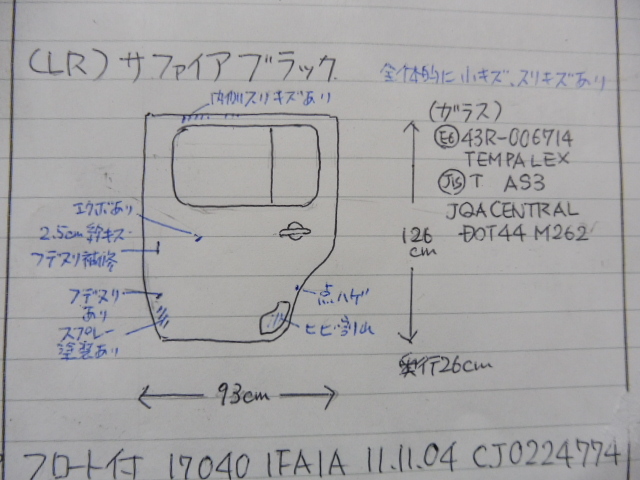 (LR) サファイアブラック
全体的に小キズ、スリキズあり
内側スリキズあり
(ガラス)
E6 43R-006714
TEMPALEX
JIS T AS3
JQA CENTRAL
DOT44 M262
エクボあり
2.5cm 線キズ
フデヌリ補修
フデヌリ
あり
スプレー
塗装あり
点ハゲ
ヒビ割れ
126
cm
奥行26cm
93cm
フロート付 17040 1FA1A 11.11.04 CJ0224774